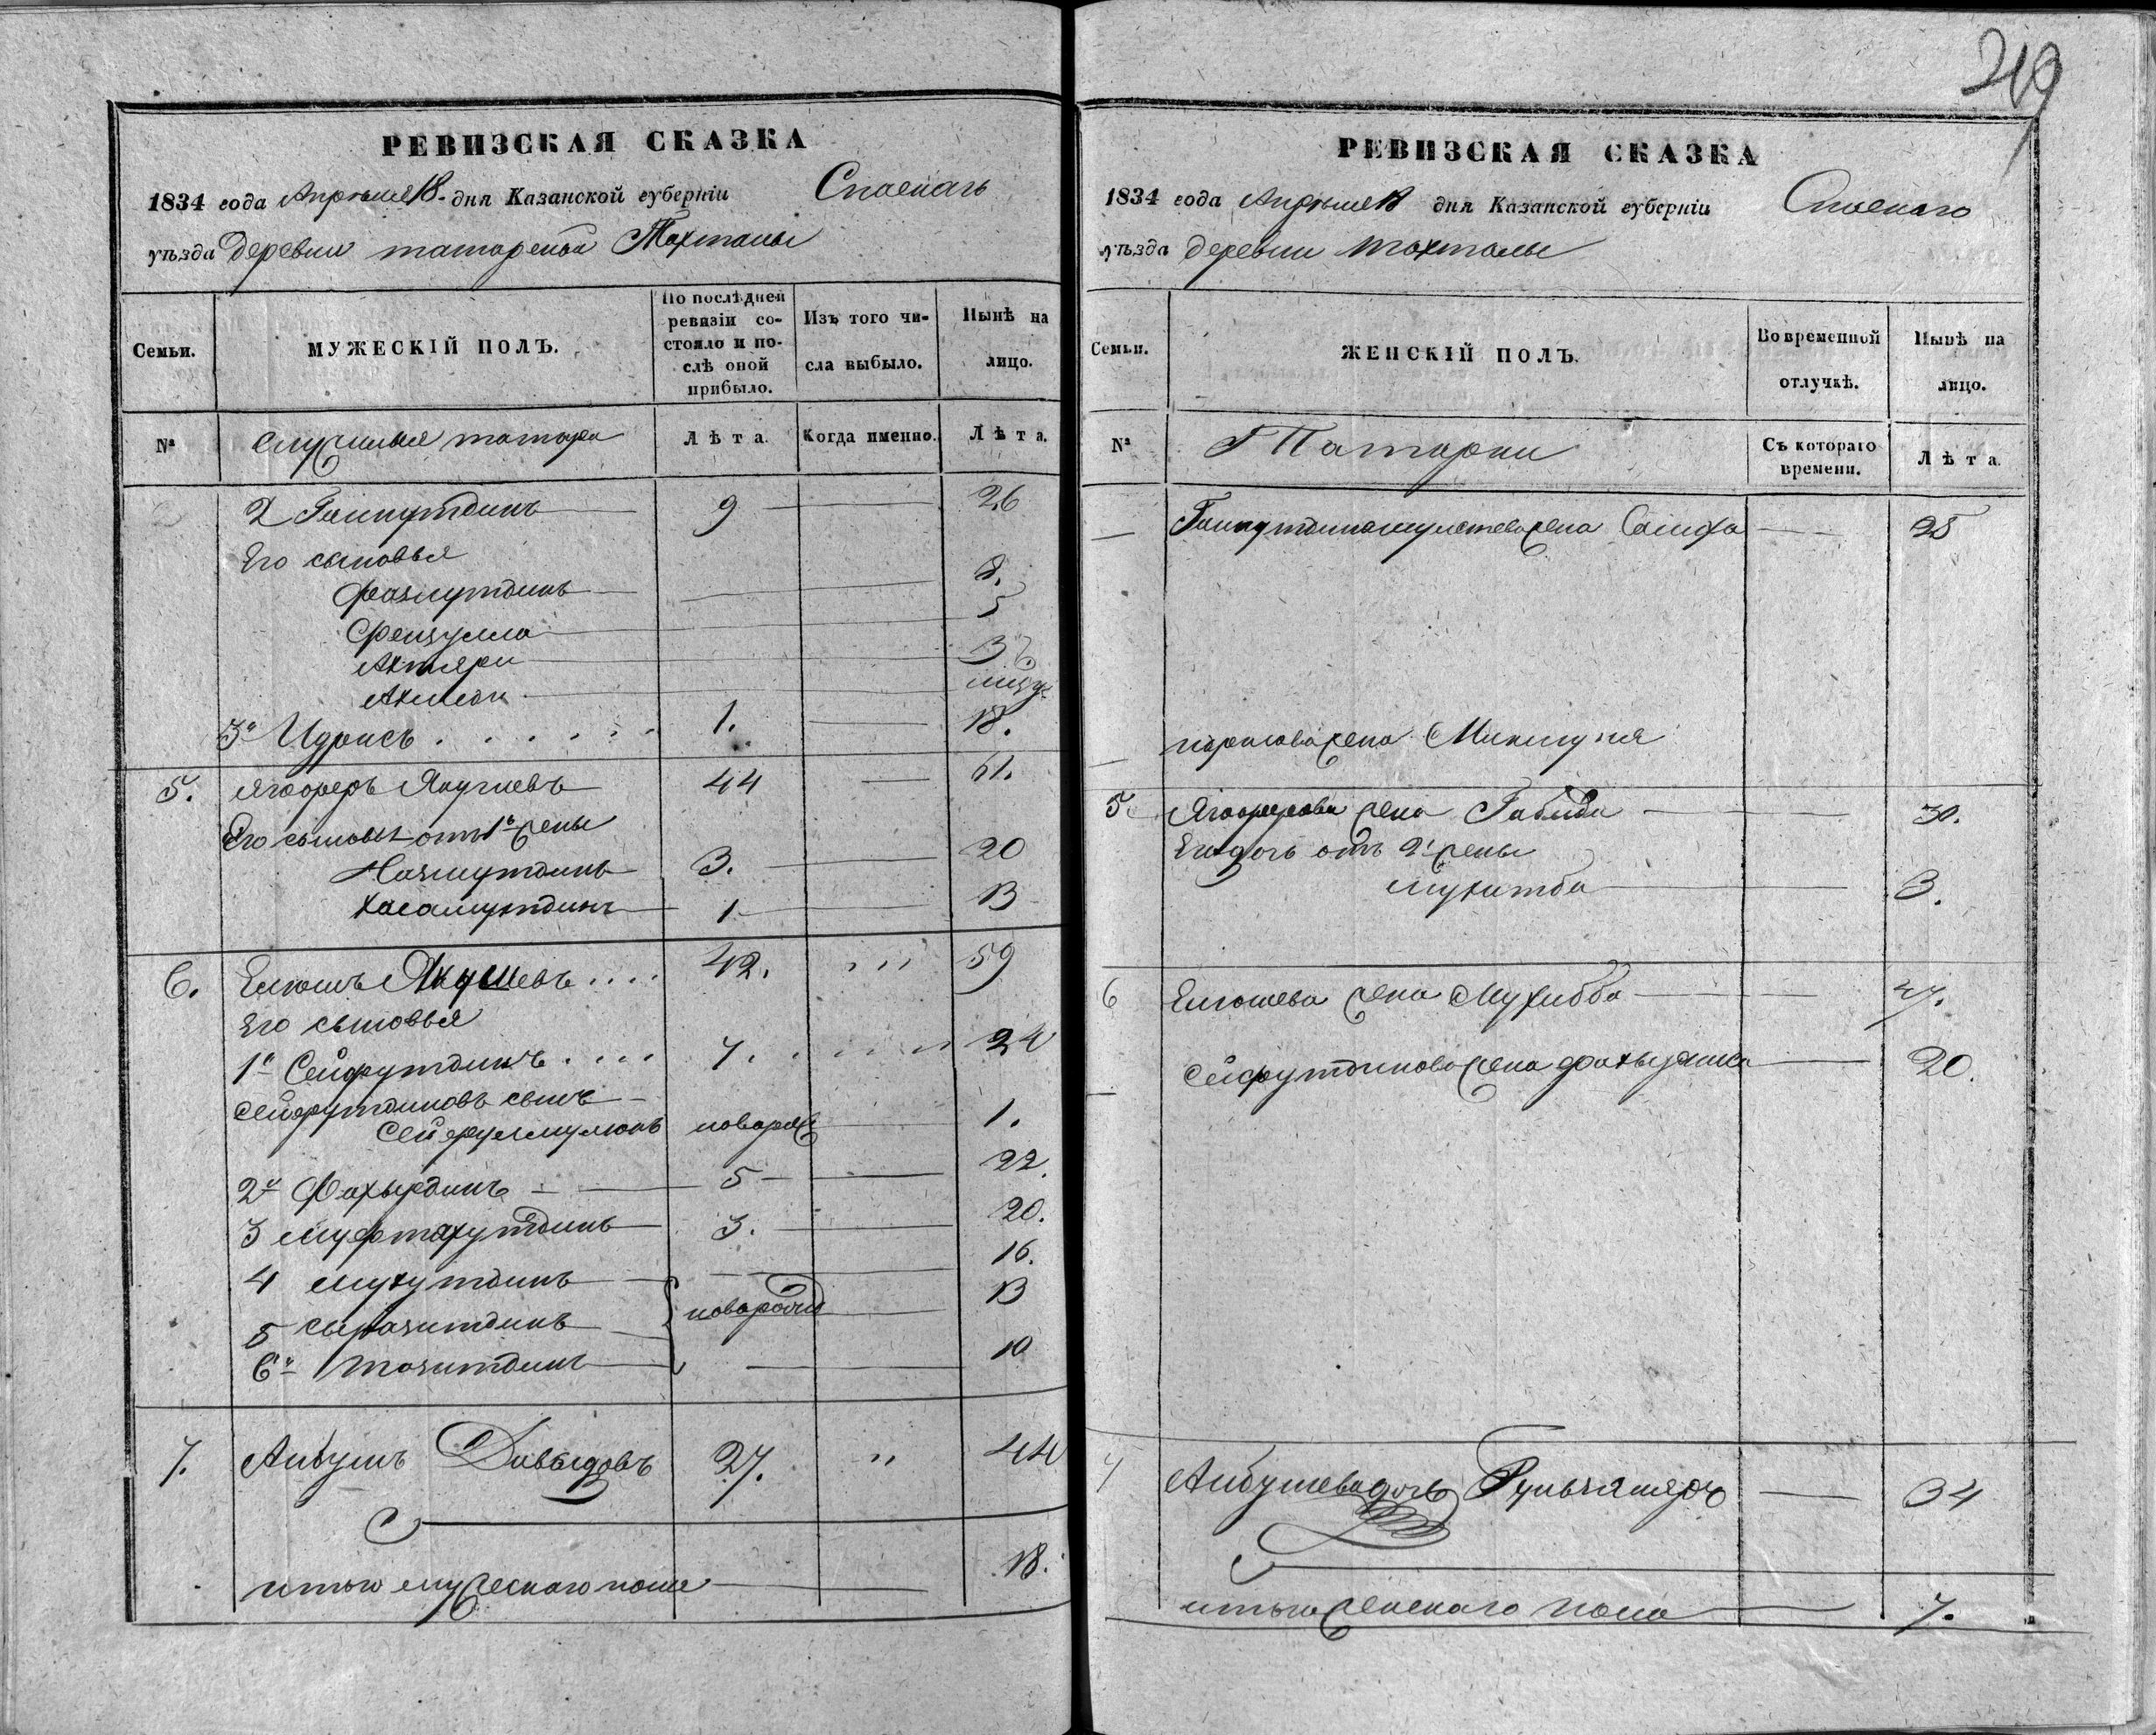 219
РЕВИЗСКАЯ СКАЗКА
1834 года Апреля 18 дня Казанской губерніи Спаскаго
уѣзда деревни татарской Тахталы
Семьи.
МУЖЕСКІЙ ПОЛЪ.
По послѣдней ревизіи состояло и послѣ оной прибыло.
Изъ того числа выбыло.
Нынѣ на лицо.
№
служилыя татара
Лѣта.
Когда именно.
Лѣта.
2 Гайнутдинъ 9 26
Его сыновья
Фазлутдинъ 8.
Фейзулла 5
Ахтяри 3
Ахмеди
3й Идрисъ 1. 18.
5. Ягоферъ Якушевъ 44 61.
Его сыновья от 1й жены
Назмутдинъ 3. 20
Хасамутдинъ 1 13
6. Елюшъ Якушевъ 42. 59
Его сыновья
1й Сейфутдинъ 7. 24
Сейфутдиновъ сынъ
Сейфулмулюкъ новорож 1.
2й Фахрыдинъ 5 22.
3 Муфтахутдинъ 3. 20.
4 Мухутдинъ 16.
5 Сыразитдинъ новорожд 13
6й Тазитдинъ 10
7. Аибушъ Давыдовъ 27. 44
итого мужескаго пола 18.
РЕВИЗСКАЯ СКАЗКА
1834 года Апреля 18 дня Казанской губерніи Спаскаго
уѣзда деревни Тахталы
Семьи.
ЖЕНСКІЙ ПОЛЪ.
Во временной отлучкѣ.
Нынѣ на лицо.
№
Татарки
Съ котораго времени.
Лѣта.
жена 25
идрисова жена
5 Ягоферова жена Габида 30.
Его дочь отъ 2й жены
3.
6 Елюшева жена Мухибба 47.
Сейфутдинова жена 20.
7 Аибушева дочь 34
итого женскаго пола 7.